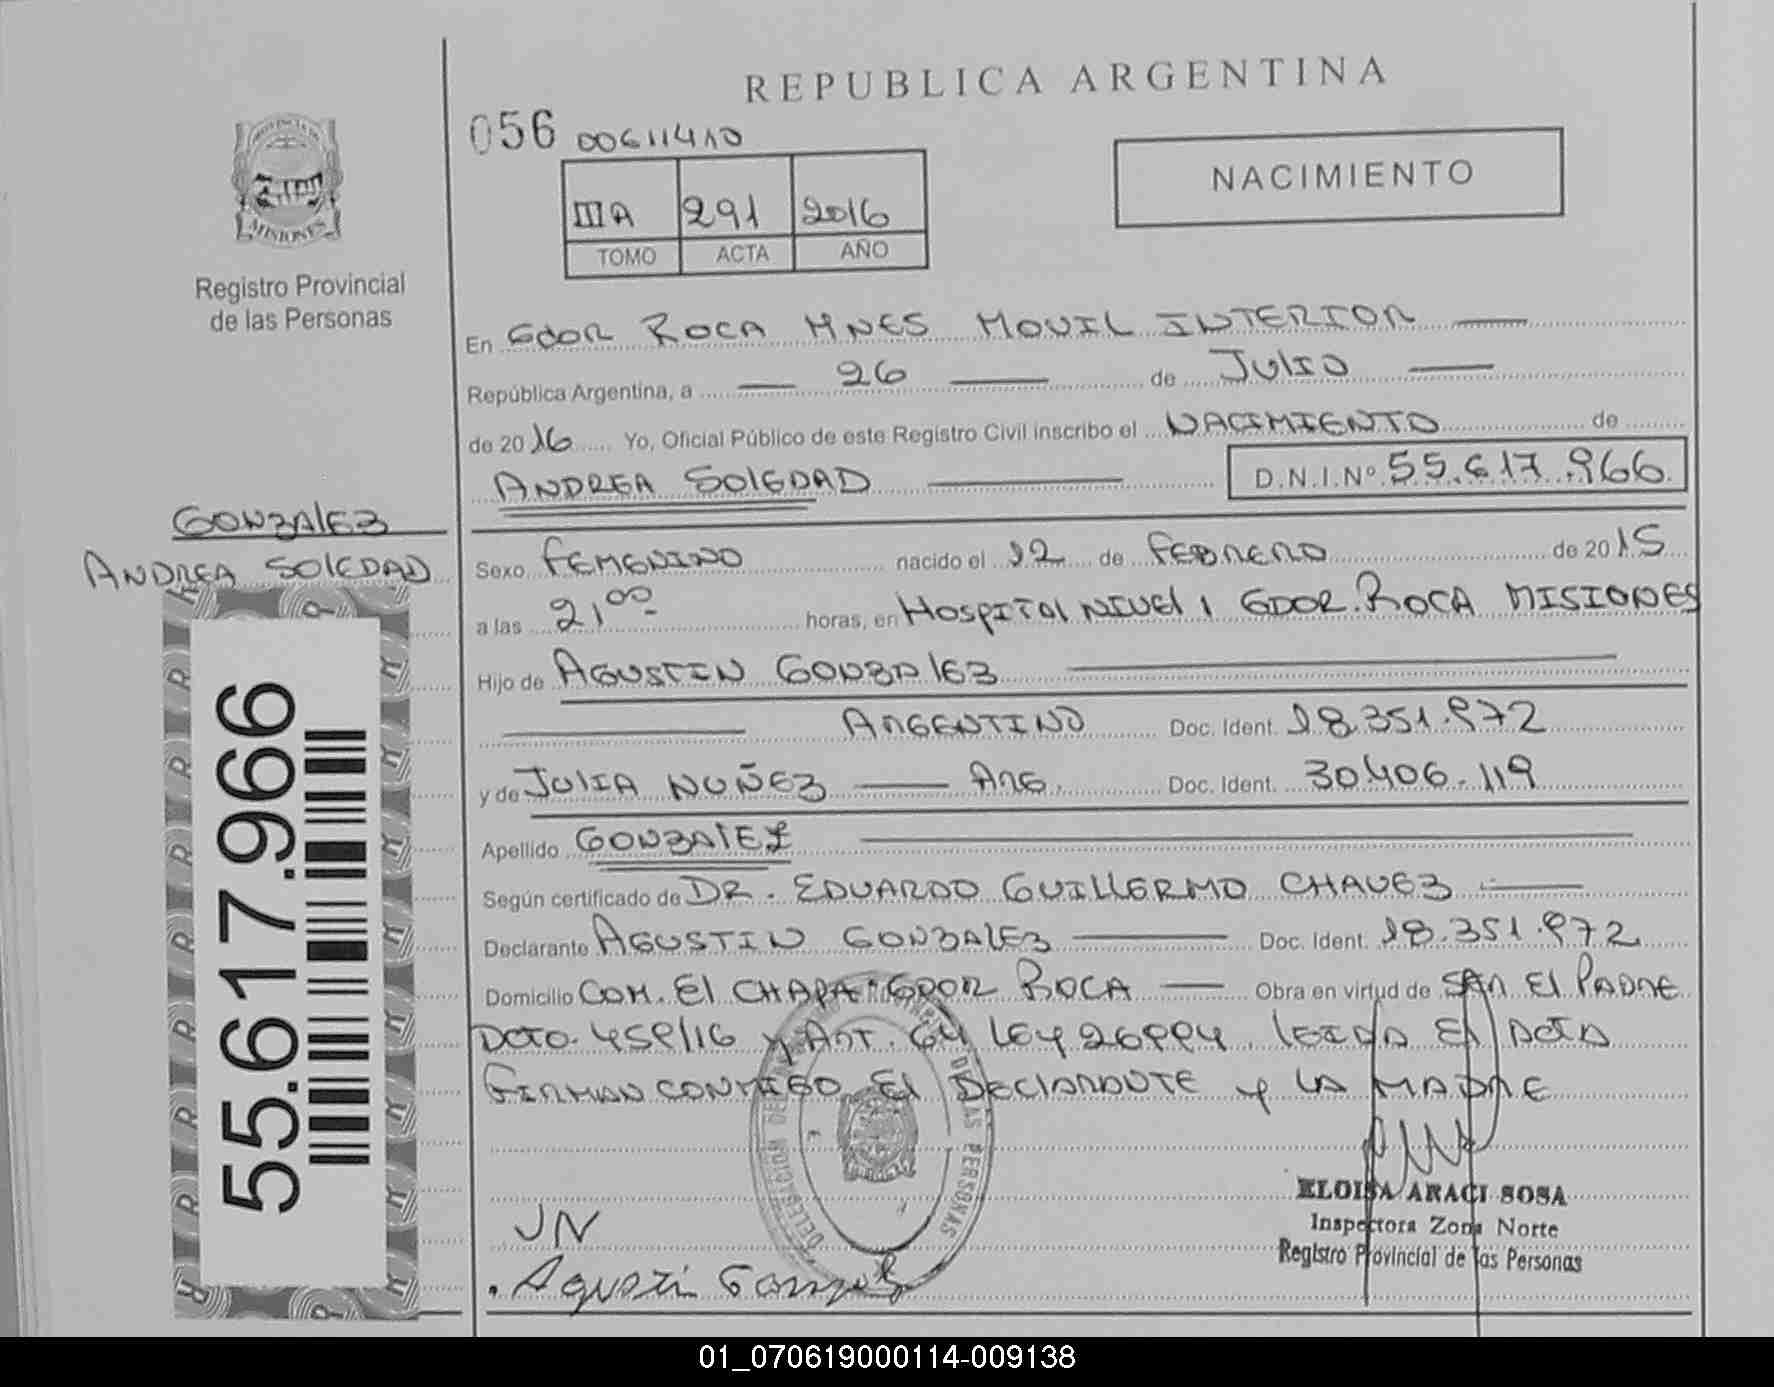 REPUBLICA ARGENTINA
056 00611410
NACIMIENTO
IIIA 291 2016
TOMO ACTA AÑO
PROVINCIA DE
MISIONES
Registro Provincial
de las Personas
En GDOR ROCA MNES MOVIL INTERIOR
República Argentina, a 26 de JULIO
de 2016 Yo, Oficial Público de este Registro Civil inscribo el NACIMIENTO de
ANDREA SOLEDAD D.N.I.Nº 55.617.966
GONZALEZ
ANDREA SOLEDAD
Sexo FEMENINO nacido el 12 de FEBRERO de 2015
a las 21,00 horas, en HOSPITAL NIVEL I GDOR. ROCA MISIONES
Hijo de AGUSTIN GONZALEZ
ARGENTINO Doc. Ident. 18.351.972
y de JULIA NUÑEZ ARG. Doc. Ident. 30.406.119
Apellido GONZALEZ
Según certificado de DR. EDUARDO GUILLERMO CHAVEZ
Declarante AGUSTIN GONZALEZ Doc. Ident. 18.351.972
Domicilio COM. El CHAPA. GDOR ROCA Obra en virtud de SER El PADRE
DCTO. 459/16 y ART. 64 LEY 26994. LEIDA El ACTA
FIRMAN CONMIGO El DECLARANTE y LA MADRE
55.617.966
DELEGACION DE LAS PERSONAS
JN
Agustin Gonzalez
ELOISA ARACI SOSA
Inspectora Zona Norte
Registro Provincial de las Personas
01_070619000114-009138